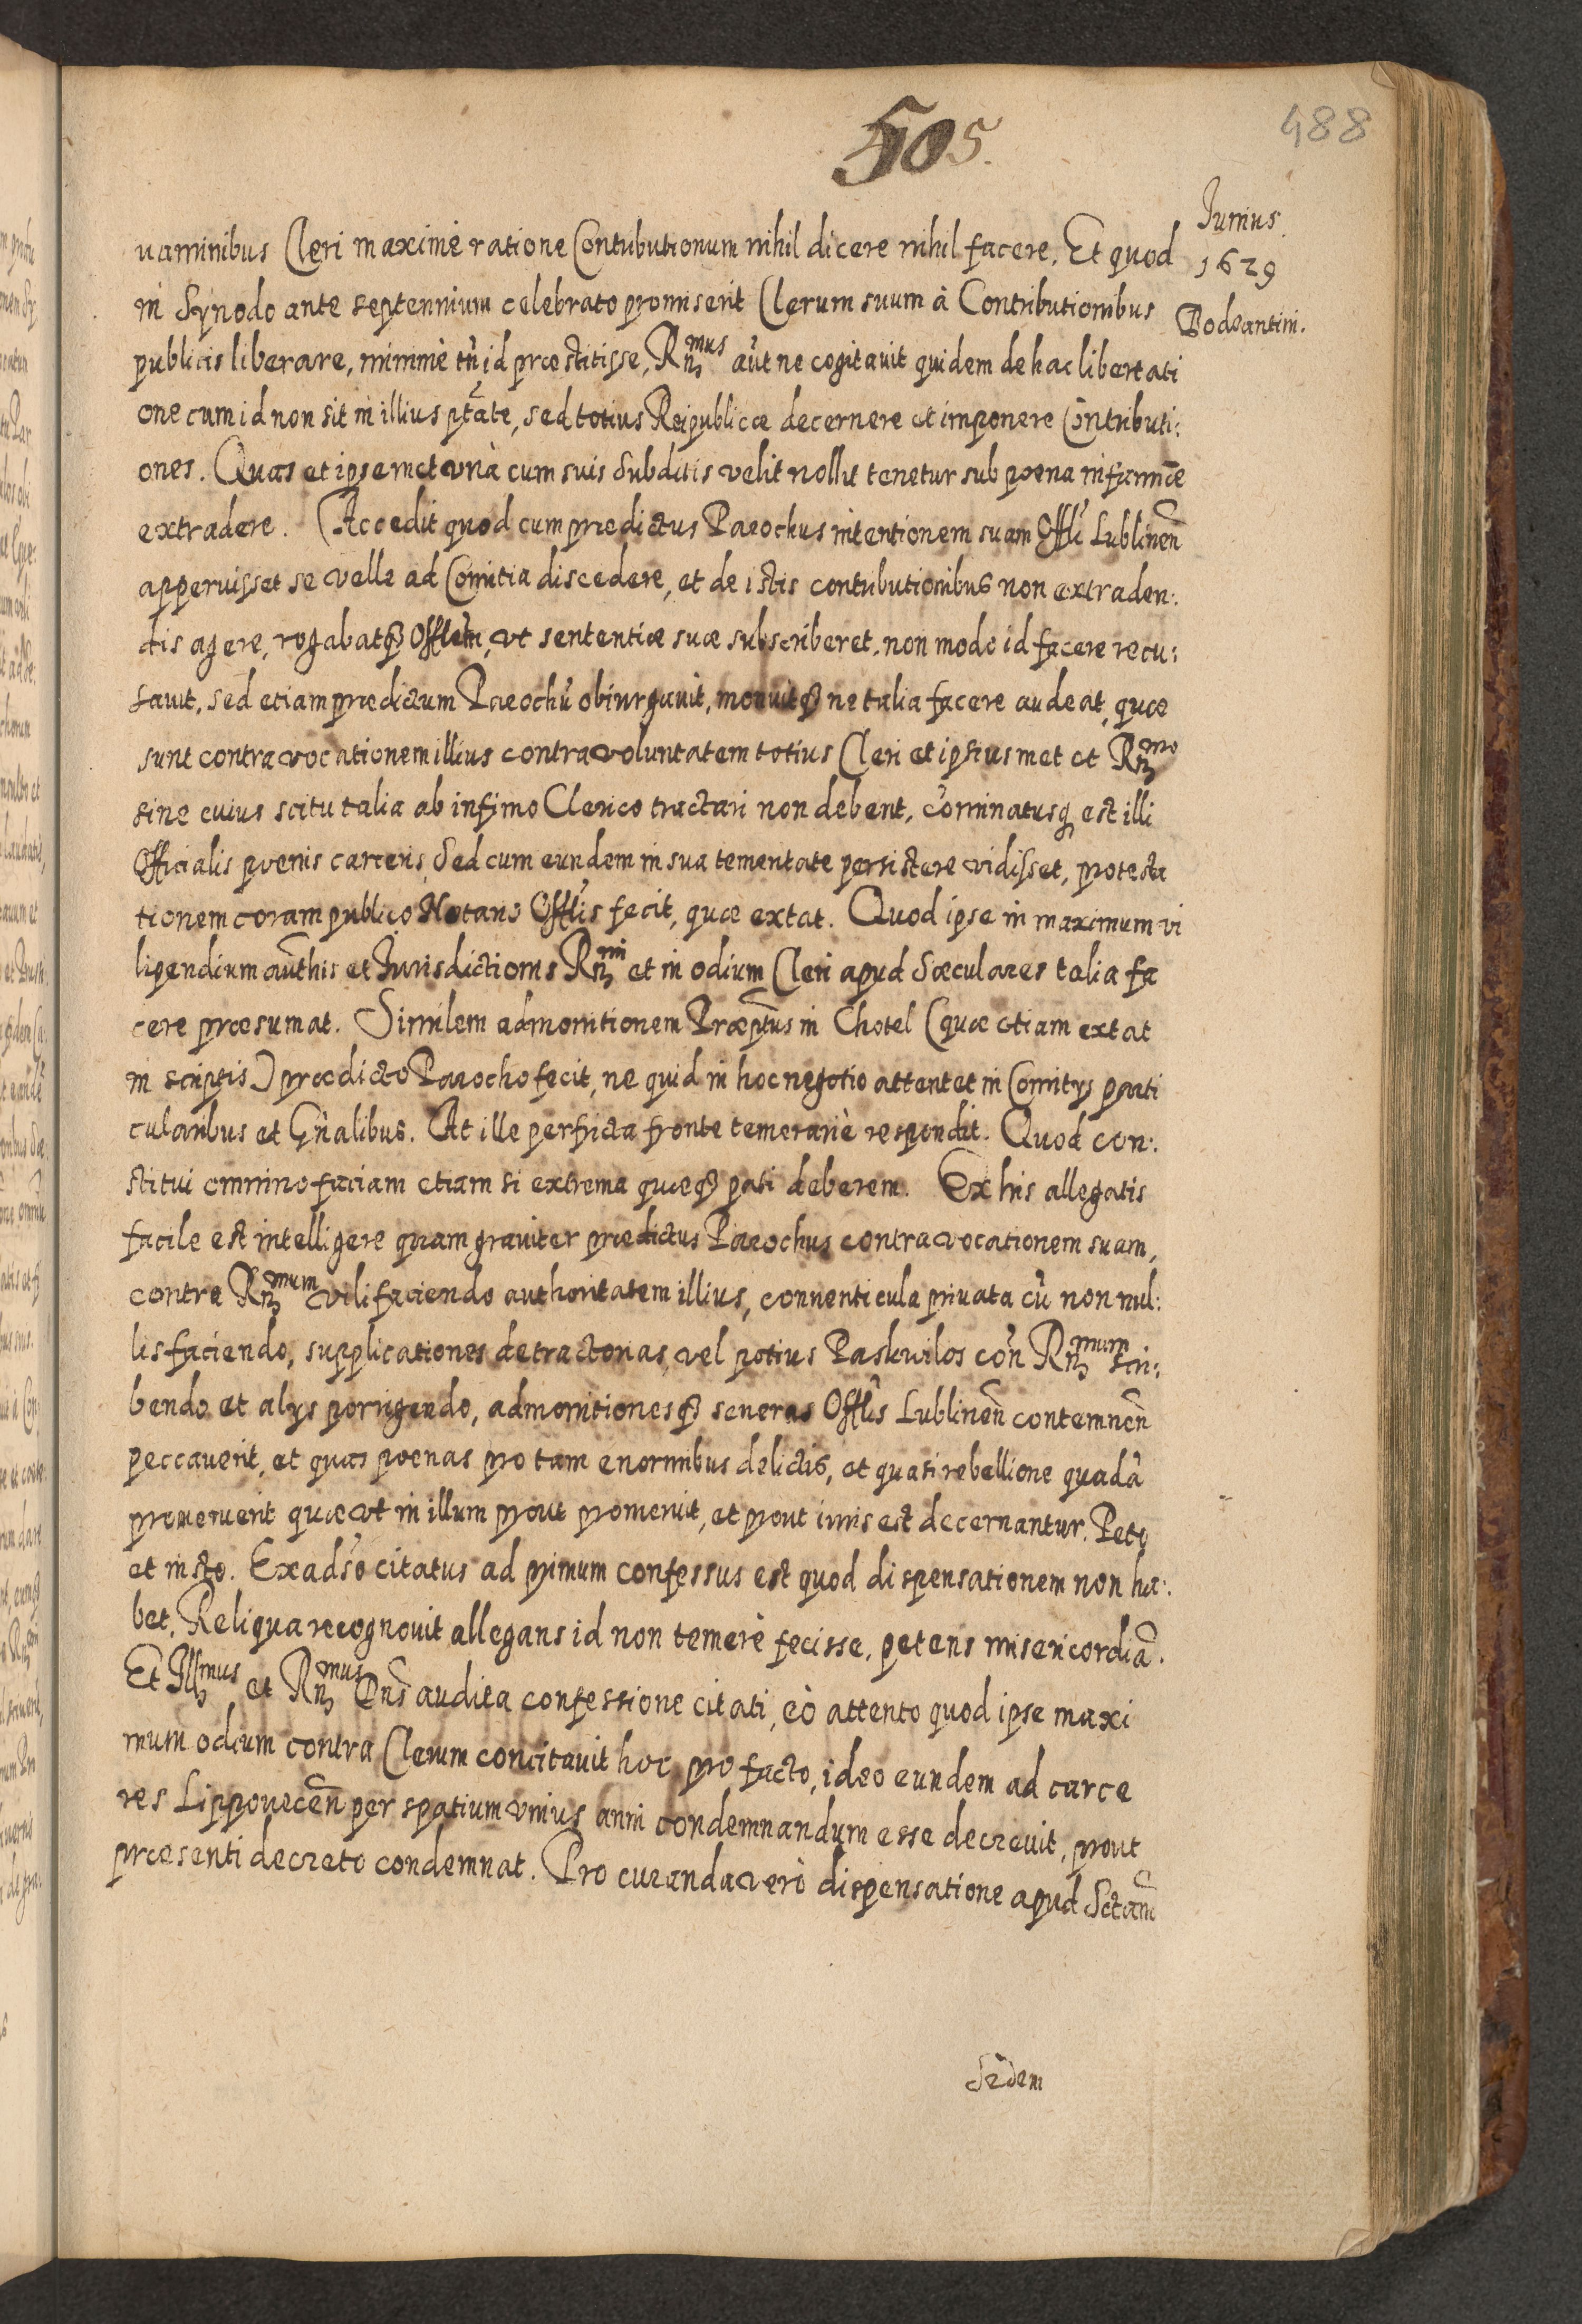 505.
488
Junius.
1629
Bodzantini.
uaminibus Cleri maximè ratione Contributionum nihil dicere nihil facere. Et quod
in Synodo ante septennium celebrato promiserit Clerum suum à Contributionibus
publicis liberare, minimè tñ id præstitisse, Rñ mus aũt ne cogitauit quidem de hac libertati
one cum id non sit in illius ptãte, sed totius Reipublicæ decernere et imponere Contributi:
ones. Quas et ipsemet vnà cum suis Subditis velit nollit tenetur sub poena infamiæ
extradere. Accedit quod cum prædictus Parochus intentionem suam Offli Lublineñ
apperuisset se velle ad Comitia discedere, et de istis contributionibus non extraden:
dis agere, rogabatq3 Offlem, vt sententiæ suæ subscriberet, non modo id facere recu:
sauit, sed etiam prædictum Parochũ obiurgauit, monuitq3 ne talia facere audeat, quæ
sunt contra vocationem illius contra voluntatem totius Cleri et ipsiusmet et Rñ mo
sine cuius scitu talia ab infimo Clerico tractari non debent, cominatusq3 est illi
Officialis poenis carceris, Sed cum eundem in sua temeritate persistere vidisset, protesta
tionem coram publico Notario Offlis fecit, quæ extat. Quod ipse in maximum vi
lipendium authis et Jurisdictionis Rñ mi et in odium Cleri apud Sæculares talia fa
cere præsumat. Similem admonitionem Præptus in Chotel (quæ etiam extat
in scriptis) prædicto Parocho fecit, ne quid in hoc negotio attentet in Comitys parti
cularibus et Gñalibus. At ille perfricta fronte temerariè respondit. Quod con:
stitui omnino faciam etiam si extrema quæq3 pati deberem. Ex his allegatis
facile est intelligere quam grauiter prædictus Parochus contra vocationem suam,
contra Rñ mum vilifaciendo authoritatem illius, conuenticula priuata cũ non nul:
lis faciendo, supplicationes detractorias, vel potius Paskwilos coñ Rñ mum scri:
bendo et alys porrigendo, admonitionesq3 seueras Offlis Lublineñ contemneñ
peccauerit, et quas poenas pro tam enormibus delictis, et quasi rebellione quadã
promeruerit quæ vt in illum prout promeruit, et prout iuris est decernantur. Peto
et insto. Ex adso citatus ad primum confessus est quod dispensationem non ha:
bet. Reliqua recognouit allegans id non temerè fecisse, petens misericordiã.
Et Ill mus et Rñ mus Dñs audita confessione citati, eò attento quod ipse maxi
mum odium contra Clerum concitauit hoc pro facto, ideo eundem ad carce
res Lippoueceñ per spatium vnius anni condemnandum esse decreuit, prout
præsenti decreto condemnat. Pro curanda verò dispensatione apud Sctam
Sedem